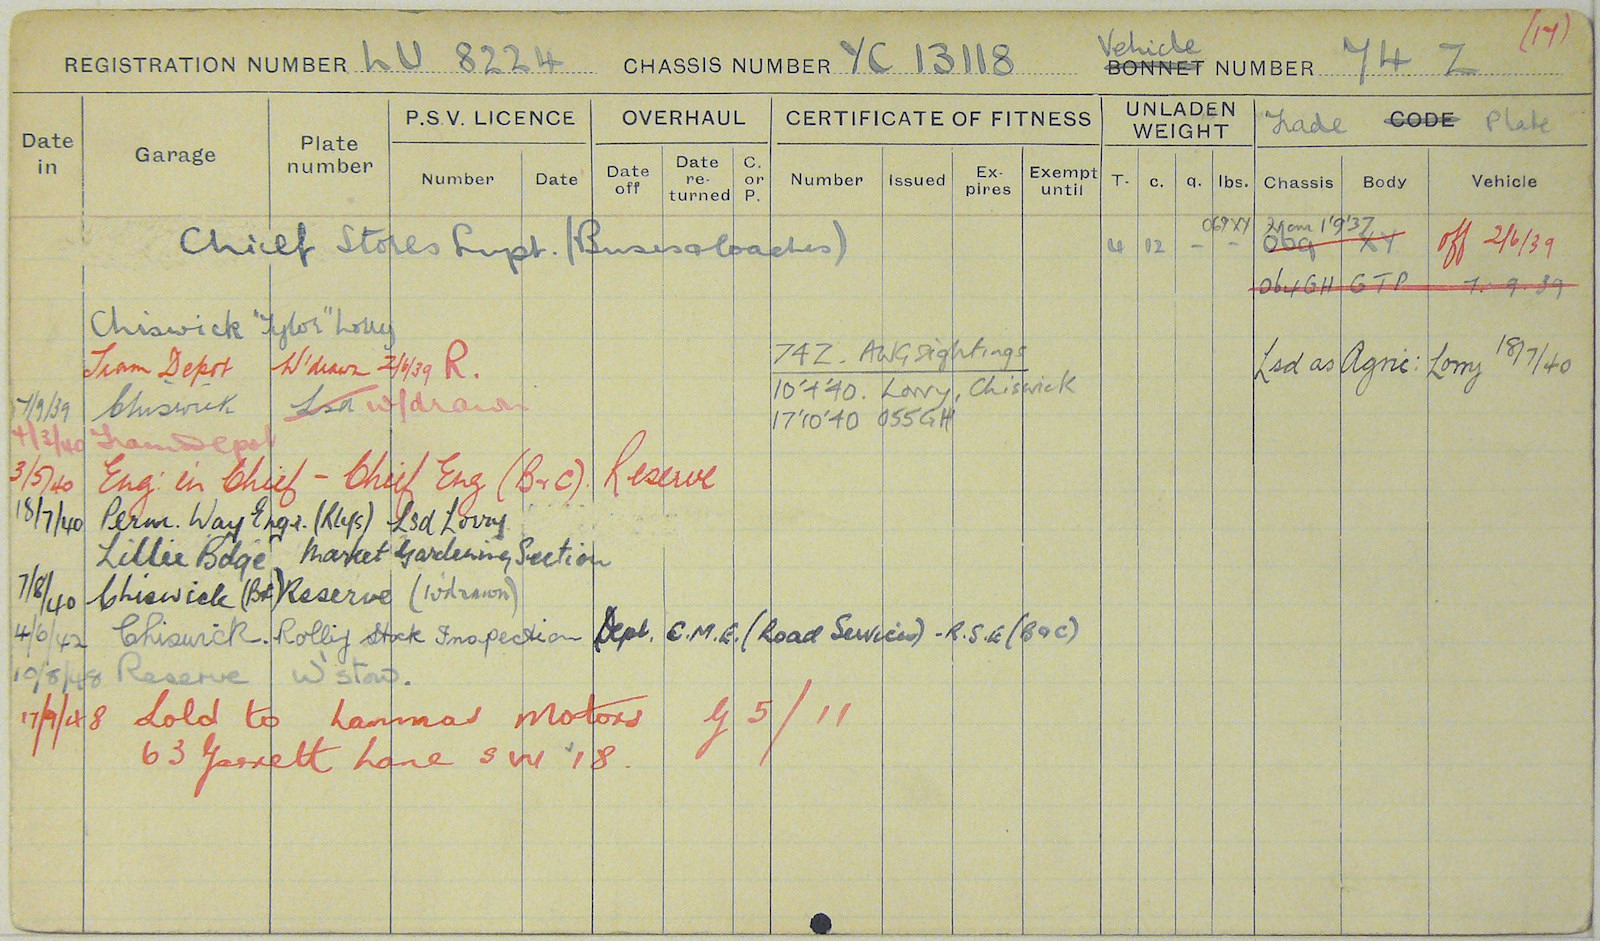 (17)
REGISTRATION NUMBER LU 8224 CHASSIS NUMBER YC 13118 Vehicle BONNET NUMBER 74 Z
Date in Garage Plate number P.S.V. LICENCE OVERHAUL CERTIFICATE OF FITNESS UNLADEN WEIGHT Trade CODE Plate
Number Date Date off Date re-turned C. or P. Number Issued Ex-pires Exempt until T. c. q. lbs. Chassis Body Vehicle
069 XY 1'9'37
Chief Stores Supt. (Buses & Coaches) 4 12 - - 069 XY off 2/6/39
064GH GTP 7. 9. 39
Chiswick "Tylor" Lorry
Tram Depot W'drawn 2/6/39 R. 74Z. AWG sightings Lsd as Agric: Lorry 18/7/40
7/9/39 Chiswick Lsd w/drawn 10'4'40. Lorry, Chiswick
4/3/40 Tram Depot 17'10'40 055GH
3/5/40 Eng: in Chief - Chief Eng (B & C). Reserve
18/7/40 Perm. Way Engr. (Rlys) Lsd Lorry
Lillie Bdge Market Gardening Section
7/8/40 Chiswick (B&C) Reserve (W'drawn)
4/6/42 Chiswick. Rollig Stock Inspection Dept. C.M.E. (Road Services) - R.S.E (B & C)
10/8/48 Reserve W'stow.
17/9/48 Sold to Lammas Motors G 5/11
63 Garrett Lane SW 18.